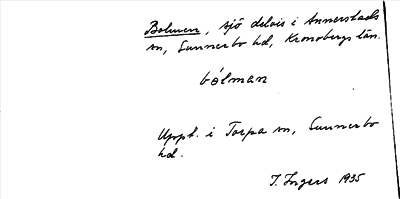 Bolmen, sjö delvis i Annerstads
sn, Sunnerbo hd, Kronobergs län.
bólman
Uppt. i Torpa sn, Sunnerbo
hd.
I. Ingers 1935